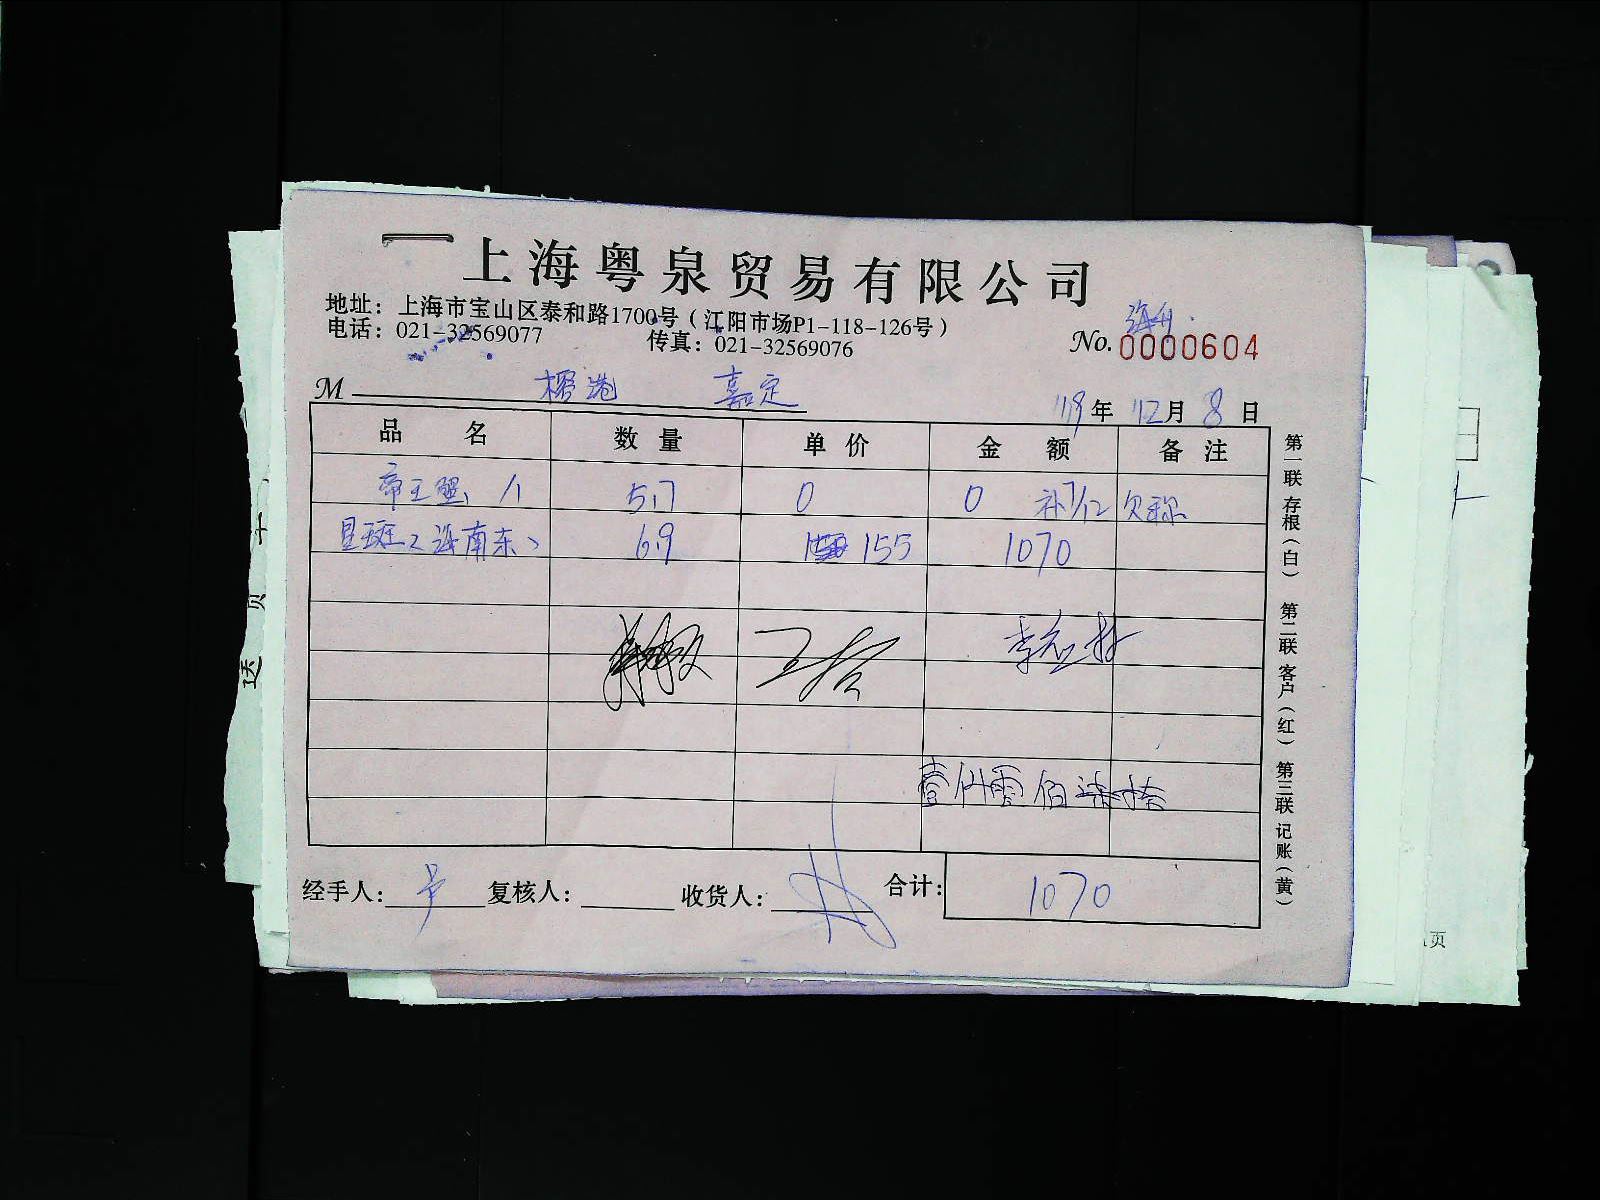 上海粤泉贸易有限公司
地址：上海市宝山区泰和路1700号（江阳市场P1-118-126号）
电话：021-32569077 传真：021-32569076
No. 0000604
M 榕港 嘉定
119年 12月 8日
品名 数量 单价 金额 备注
帝王蟹 1个 5.7 0 0 补7/12 欠称
星斑2海南东 6.9 155 1070
壹仟零佰柒拾
经手人： 复核人： 收货人： 合计： 1070
第一联 存根（白） 第二联 客户（红） 第三联 记账（黄）
送
页